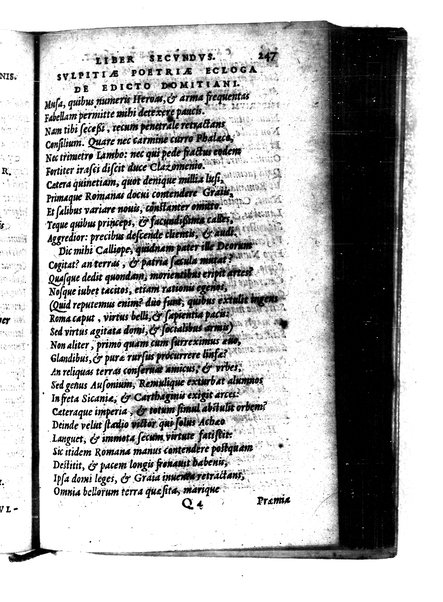 NIS.
R.
ner
I.
VL-
LIBER SECVNDVS. 247
SVLPITIÆ POETRIÆ ECLOGA
DE EDICTO DOMITIANI.
Musa, quibus numeris Heroas, & arma frequentas
Fabellam permitte mihi detexere pauců.
Nam tibi secessi, tecum penetrale retractans
Consilium. Quare nec carmine curro Phalæco,
Nec trimetro Iambo: nec qui pede fractus eodem
Fortiter irasci discit duce Clazomenio.
Cætera quinetiam, quot denique millia lusi,
Primaque Romanas docui contendere Graiis,
Et salibus variare nouis, constanter omitto.
Teque quibus princeps, & facundissima calles,
Aggredior: precibus descende clientis, & audi.
Dic mihi Calliope, quidnam pater ille Deorum
Cogitat? an terras, & patria sæcula mutat?
Quasque dedit quondam, morientibus eripit artes?
Nosque iubet tacitos, etiam rationis egenos,
(Quid reputemus enim? duo sunt, quibus extulit ingens
Roma caput, virtus belli, & sapientia pacis:
Sed virtus agitata domi, & socialibus armis)
Non aliter, primo quam cum surreximus æuo,
Glandibus, & puræ rursus procurrere linfæ?
An reliquas terras conseruat amicus, & vrbes,
Sed genus Ausonium, Remulique exturbat alumnos
In freta Sicania, & Carthaginis exigit arces:
Cæteraque imperia, & totum simul abstulit orbem?
Deinde velut stadio victor qui solus Achæo
Languet, & immota secum virtute fatiscit:
Sic itidem Romana manus contendere postquam
Destitit, & pacem longis frenauit habenis,
Ipsa domi leges, & Graia inuenta retractans,
Omnia bellorum terra quæsita, marique
Q 4 Præmia